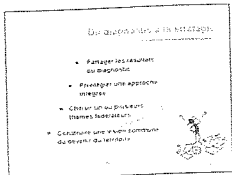 Du diagnostic à la stratégie
Partager les résultats
du diagnostic
Privilégier une approche
intégrée
Choisir un ou plusieurs
thèmes fédérateurs
Construire une vision commune
du devenir du territoire